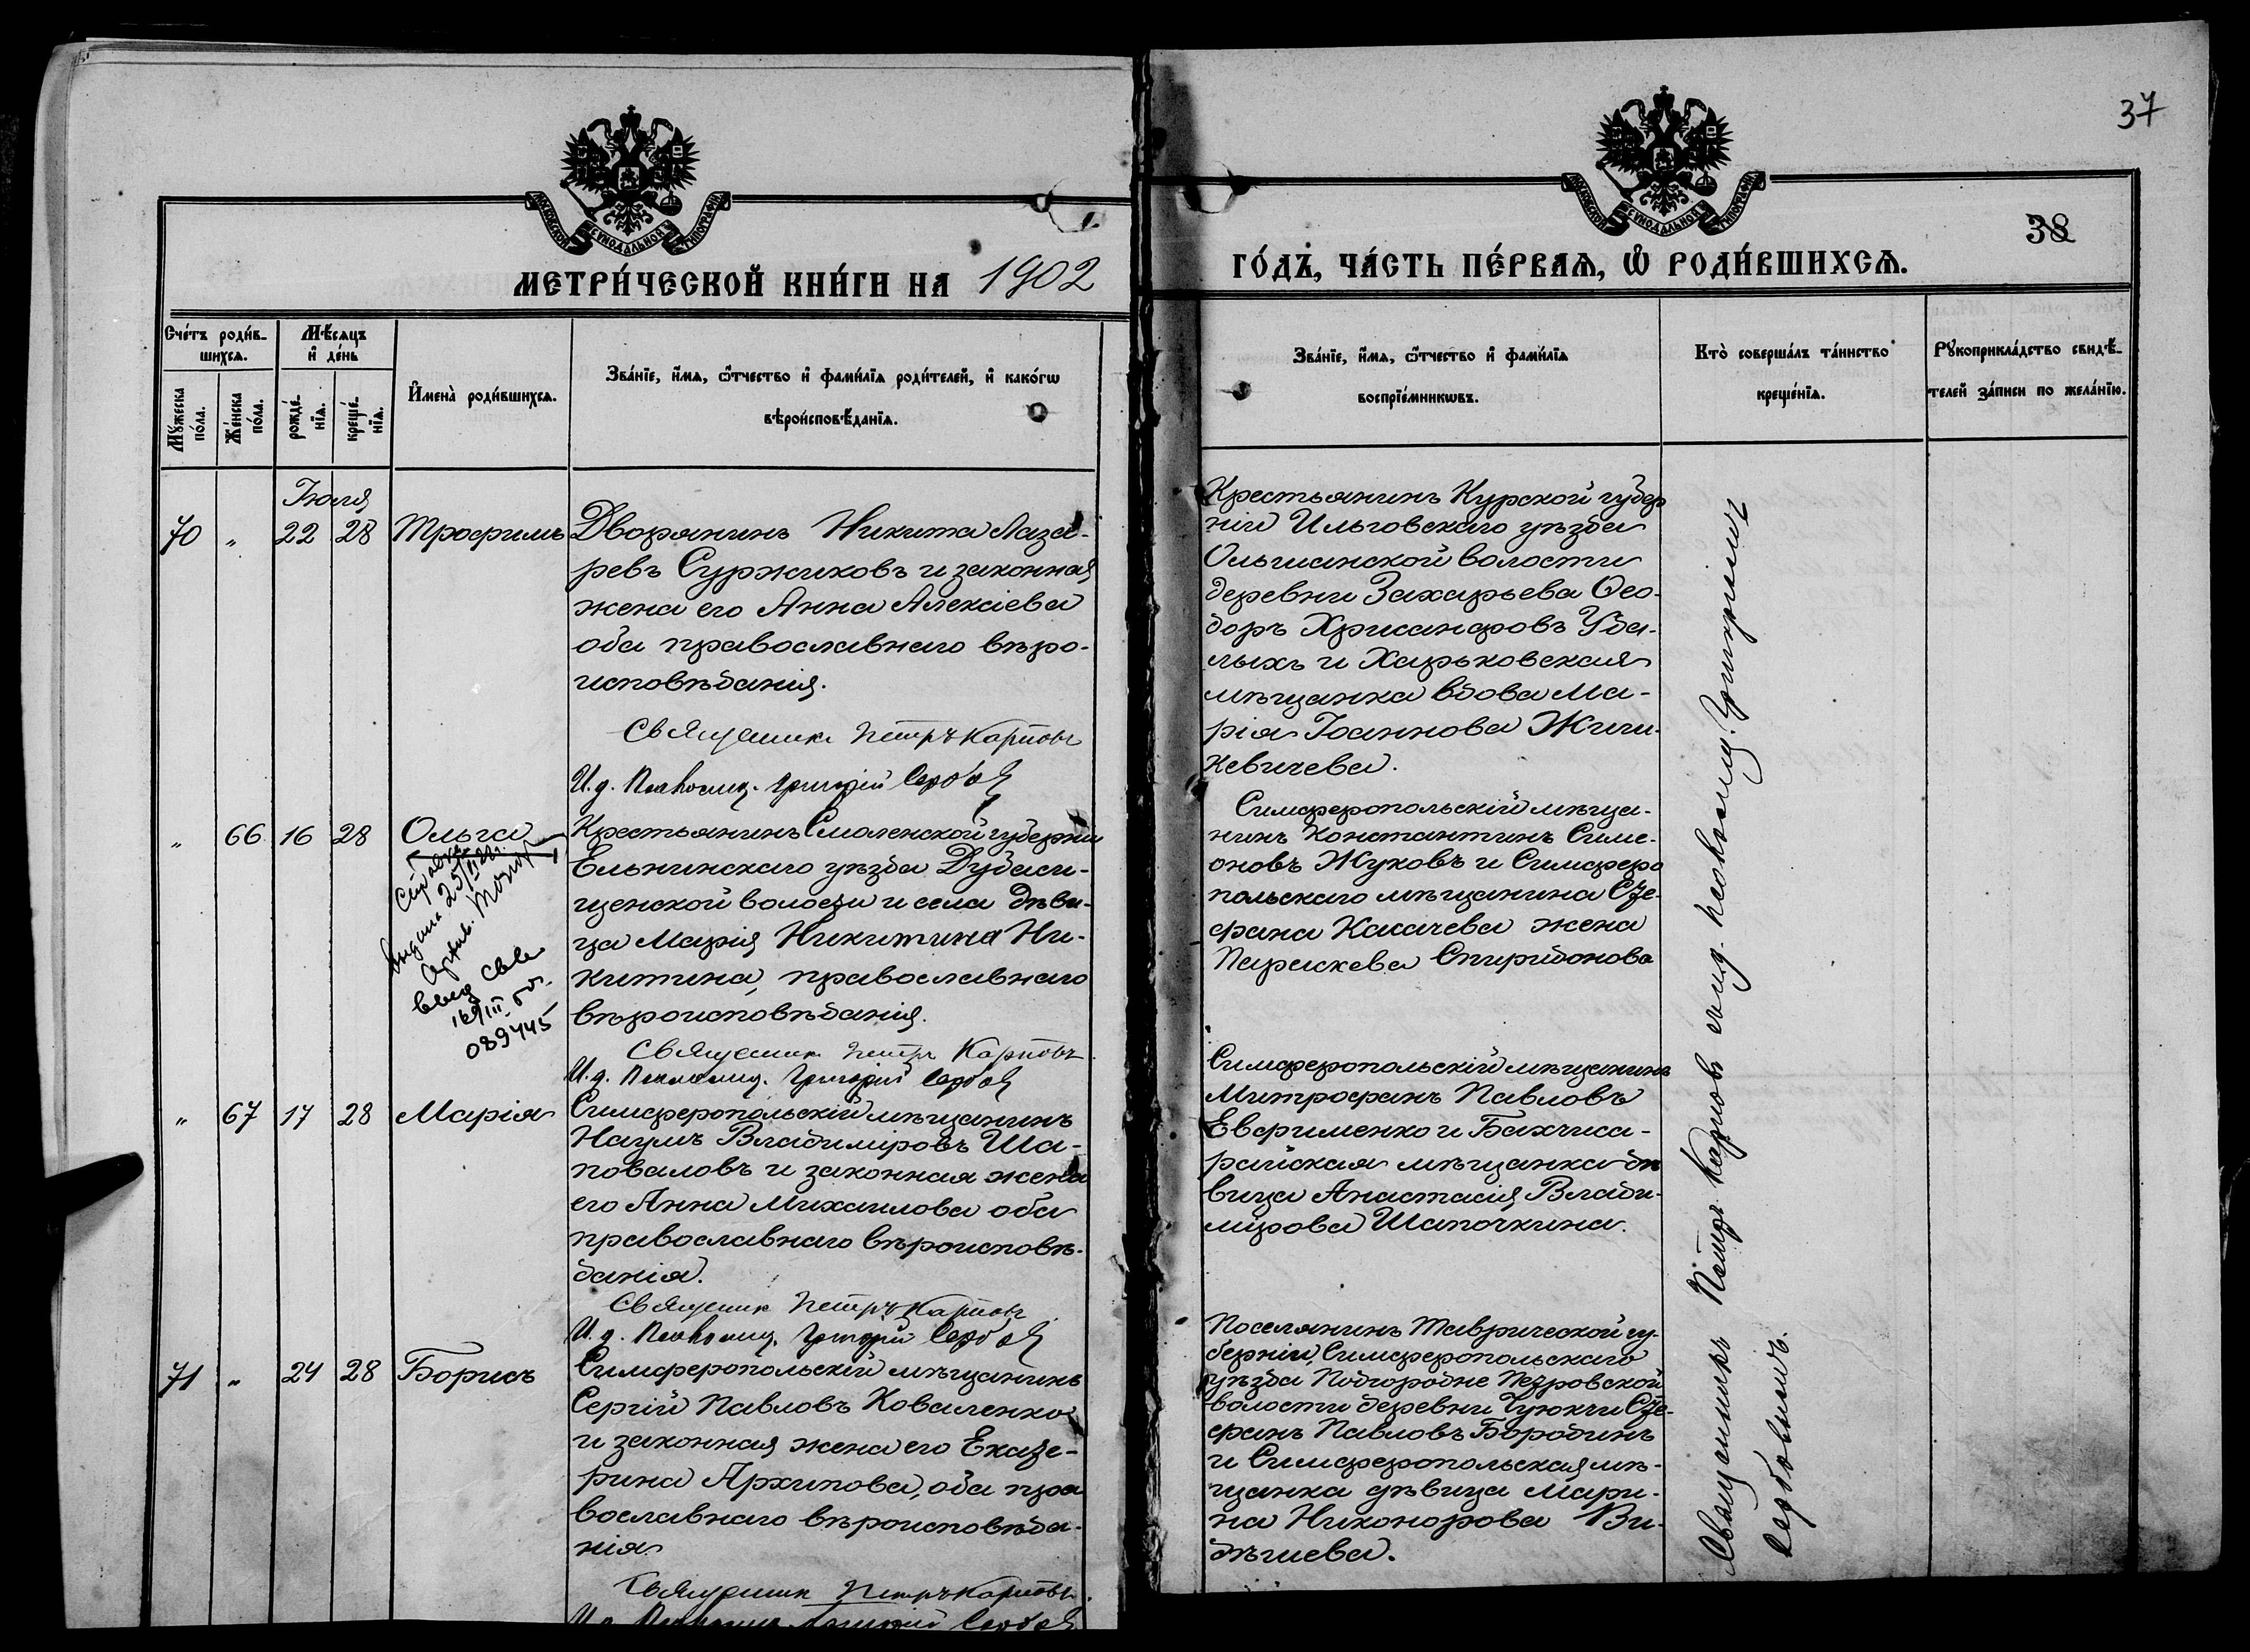 37
38
МЕТРИ́ЧЕСКОЙ КНИ́ГИ НА 1902
ГО́ДЪ, ЧА́СТЬ ПЕ́РВАѦ, Ѡ РОДИ́ВШИХСѦ.
МОСКОВСКОЙ СѴНОДАЛЬНОЙ ТИПОГРАФІИ
МОСКОВСКОЙ СѴНОДАЛЬНОЙ ТИПОГРАФІИ
Сче́тъ роди́в-
шихсѧ.
Мꙋ́жеска
по́ла.
Же́нска
по́ла.
Мѣ́сѧцъ
и҆ де́нь
рожде́-
нїѧ.
креще́-
нїѧ.
И҆мена̀ роди́вшихсѧ.
Зва́нїе, и҆́мѧ, ѻ҆́тчество и҆ фами́лїѧ роди́телей, и҆ како́гѡ
вѣроисповѣ́данїѧ.
Зва́нїе, и҆́мѧ, ѻ҆́тчество и҆ фами́лїѧ
воспрїе́мникѡвъ.
Кто̀ соверша́лъ та́инство
креще́нїѧ.
Рꙋкоприкла́дство свидѣ́-
телей за́писи по жела́нїю.
Іюля
70 " 22 28 Трофимъ
Дворянинъ Никита Лаза-
ревъ Суржиковъ и законная
жена его Анна Алексіева
оба православнаго вѣро-
исповѣданія.
Священникъ Петръ Карповъ
И. д. Псаломщ. Григорій
Крестьянинъ Курской губер
ніи Ильговскаго уѣзда
Ольшанской волости
деревни Захарьева Ѳео-
доръ Хрисанфовъ Уда-
лыхъ и Харьковская
мѣщанка вдова Ма-
рія Іоаннова Жиги-
кевичева.
" 66 16 28 Ольга
Справка
выдана
выд св-во
089445
Крестьянинъ Смоленской губерніи
Ельнинскаго уѣзда Дубаси-
щенской волости и села дѣви-
ца Марія Никитина Ни-
китина, православнаго
вѣроисповѣданія.
Священникъ Петръ Карповъ
И. д. Псаломщ. Григорій
Симферопольскій мѣща-
нинъ Константинъ Симе-
оновъ Жуковъ и Симферо
польскаго мѣщанина Сте-
фана Касачева жена
Параскева Спиридонова
" 67 17 28 Марія
Симферопольскій мѣщанинъ
Наумъ Владиміровъ Ша-
поваловъ и законная жена
его Анна Михаилова оба
православнаго вѣроисповѣ-
данія.
Священникъ Петръ Карповъ
И. д. Псаломщ. Григорій
Симферопольскій мѣщанинъ
Митрофанъ Павловъ
Евфименко и Бахчиса-
райская мѣщанка дѣ
вица Анастасія Влади-
мірова Шапочкина.
71 " 24 28 Борисъ
Симферопольскій мѣщанинъ
Сергій Павловъ Коваленко
и законная жена его Екате-
рина Архипова, оба пра
вославнаго вѣроисповѣда-
нія.
Священникъ Петръ Карповъ
Поселянинъ Таврической гу-
берніи, Симферопольскаго
уѣзда Подгородне Петровской
волости деревни Чуюкчи Сте-
фанъ Павловъ Бородинъ
и Симферопольская мѣ-
щанка дѣвица Мари-
на Никонорова Ви-
дѣшева.
Священникъ Петръ Карповъ съ и.д. псаломщ. Григоріемъ